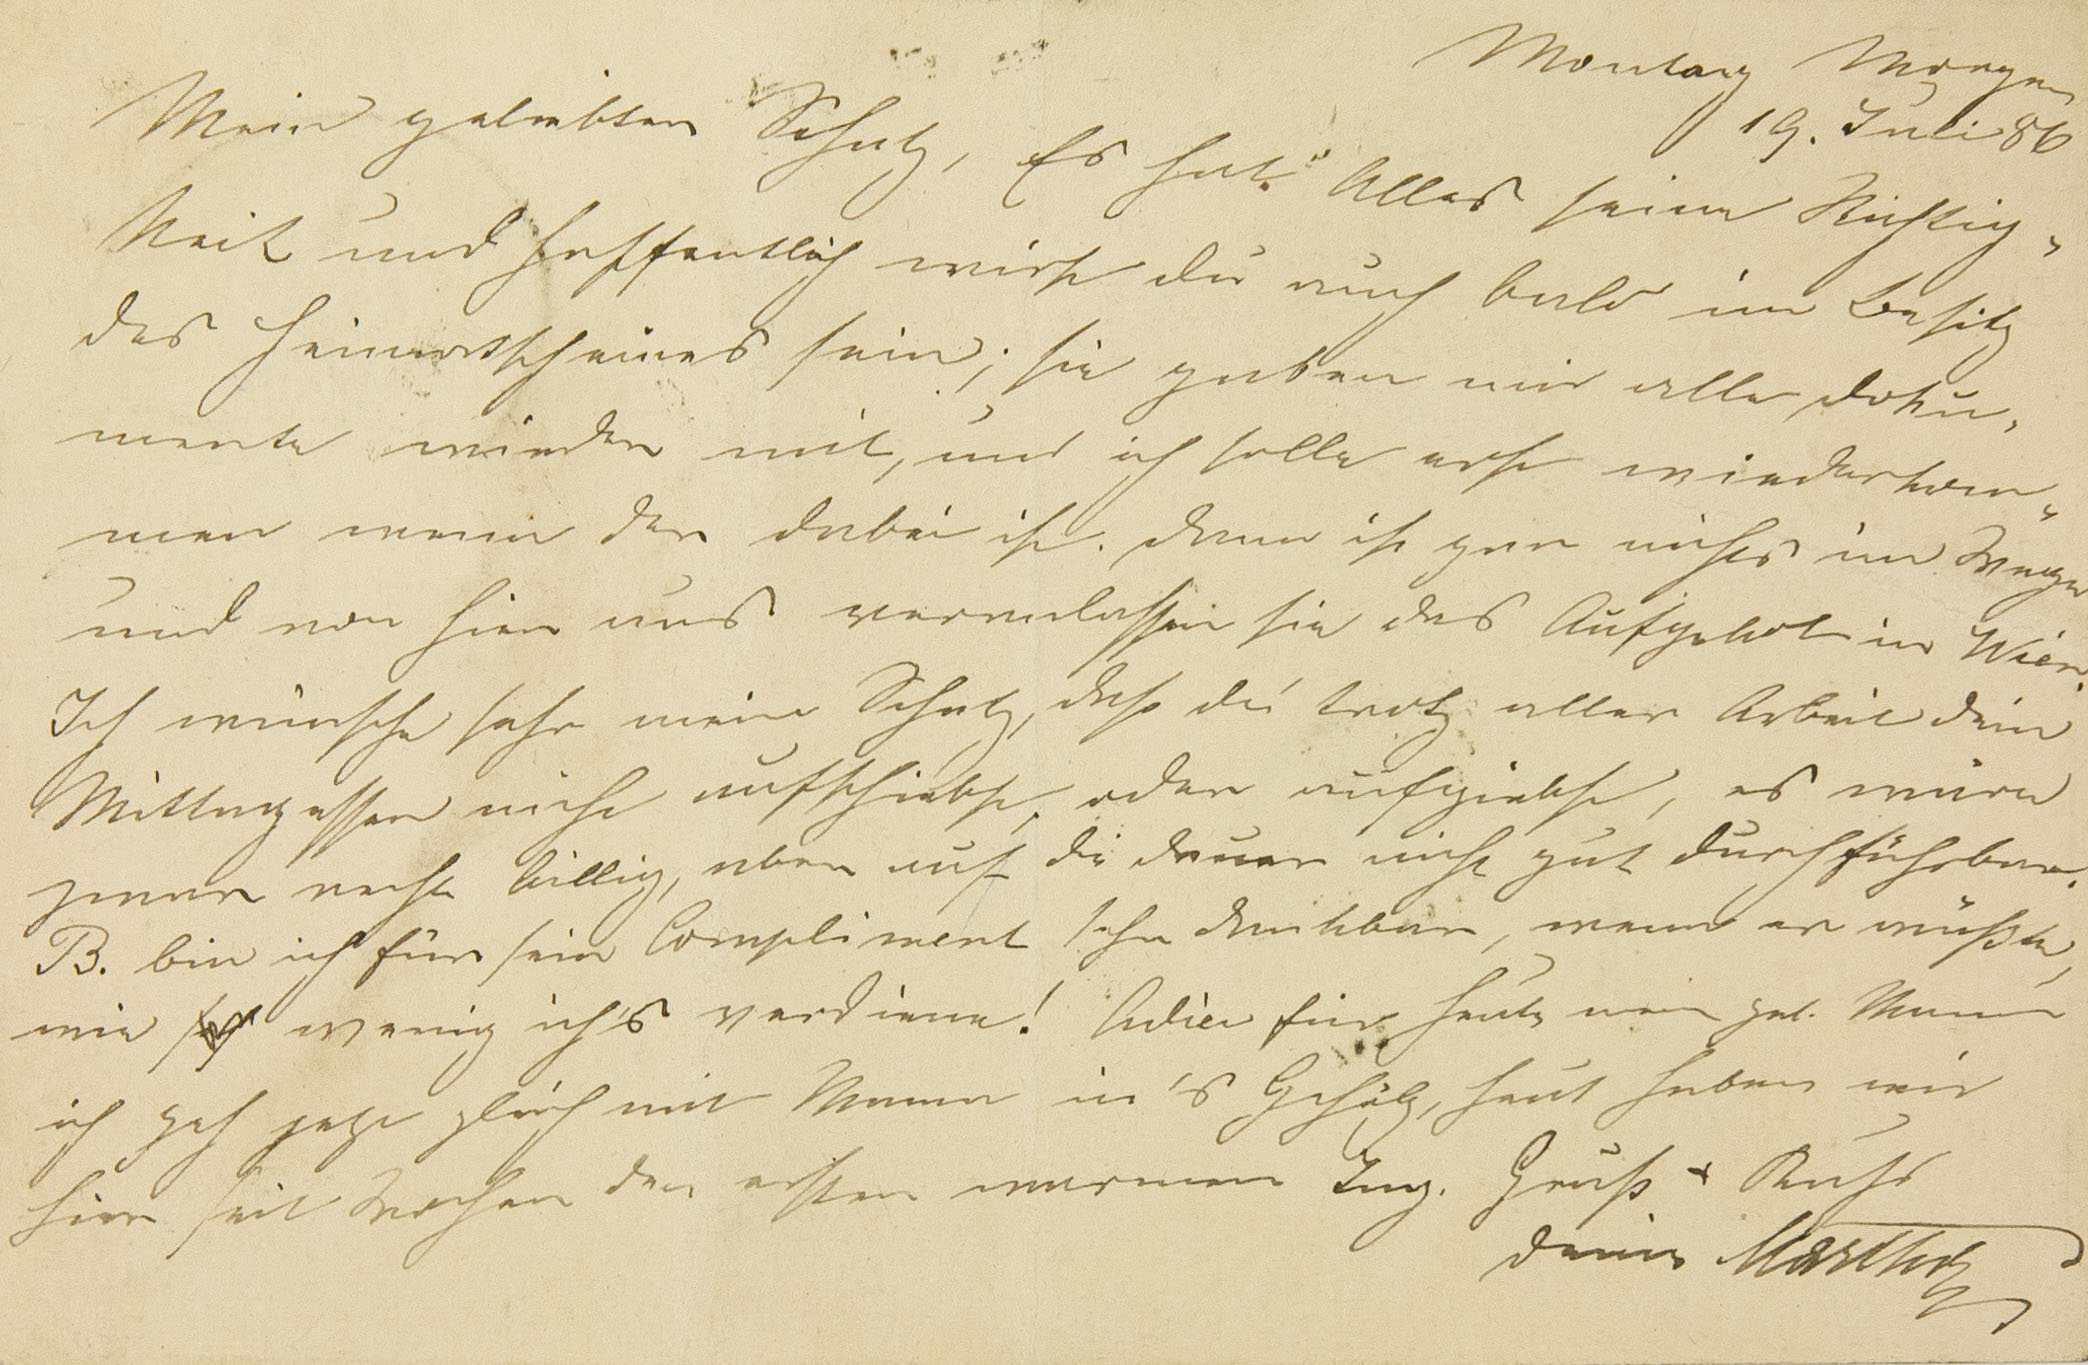 Montag Morgen
19. Juli 86
Mein geliebter Schatz, Es hat Alles seine Richtig-
keit und hoffentlich wirst du auch bald im Besitz
des Heimatscheines sein; sie gaben mir alle Doku-
mente wieder mit, und ich solle erst wiederkom-
men wenn der dabei ist. Dann ist gar nichts im Wege
und von hier aus veranlassen sie das Aufgebot in Wien.
Ich wünsche sehr mein Schatz, daß du trotz aller Arbeit dein
Mittagessen nicht aufschiebst, oder aufgiebst, es wäre
zwar recht billig, aber auf die Dauer nicht gut durchführbar.
B. bin ich für sein Compliment sehr dankbar, wenn er wüßte,
wie wenig ich's verdiene! Adieu für heute mein gel. Mann
ich geh jetzt gleich mit Mama in's Gehölz, heut haben wir
hier seit Wochen den ersten warmen Tag. Gruß + Kuß
deine Martha